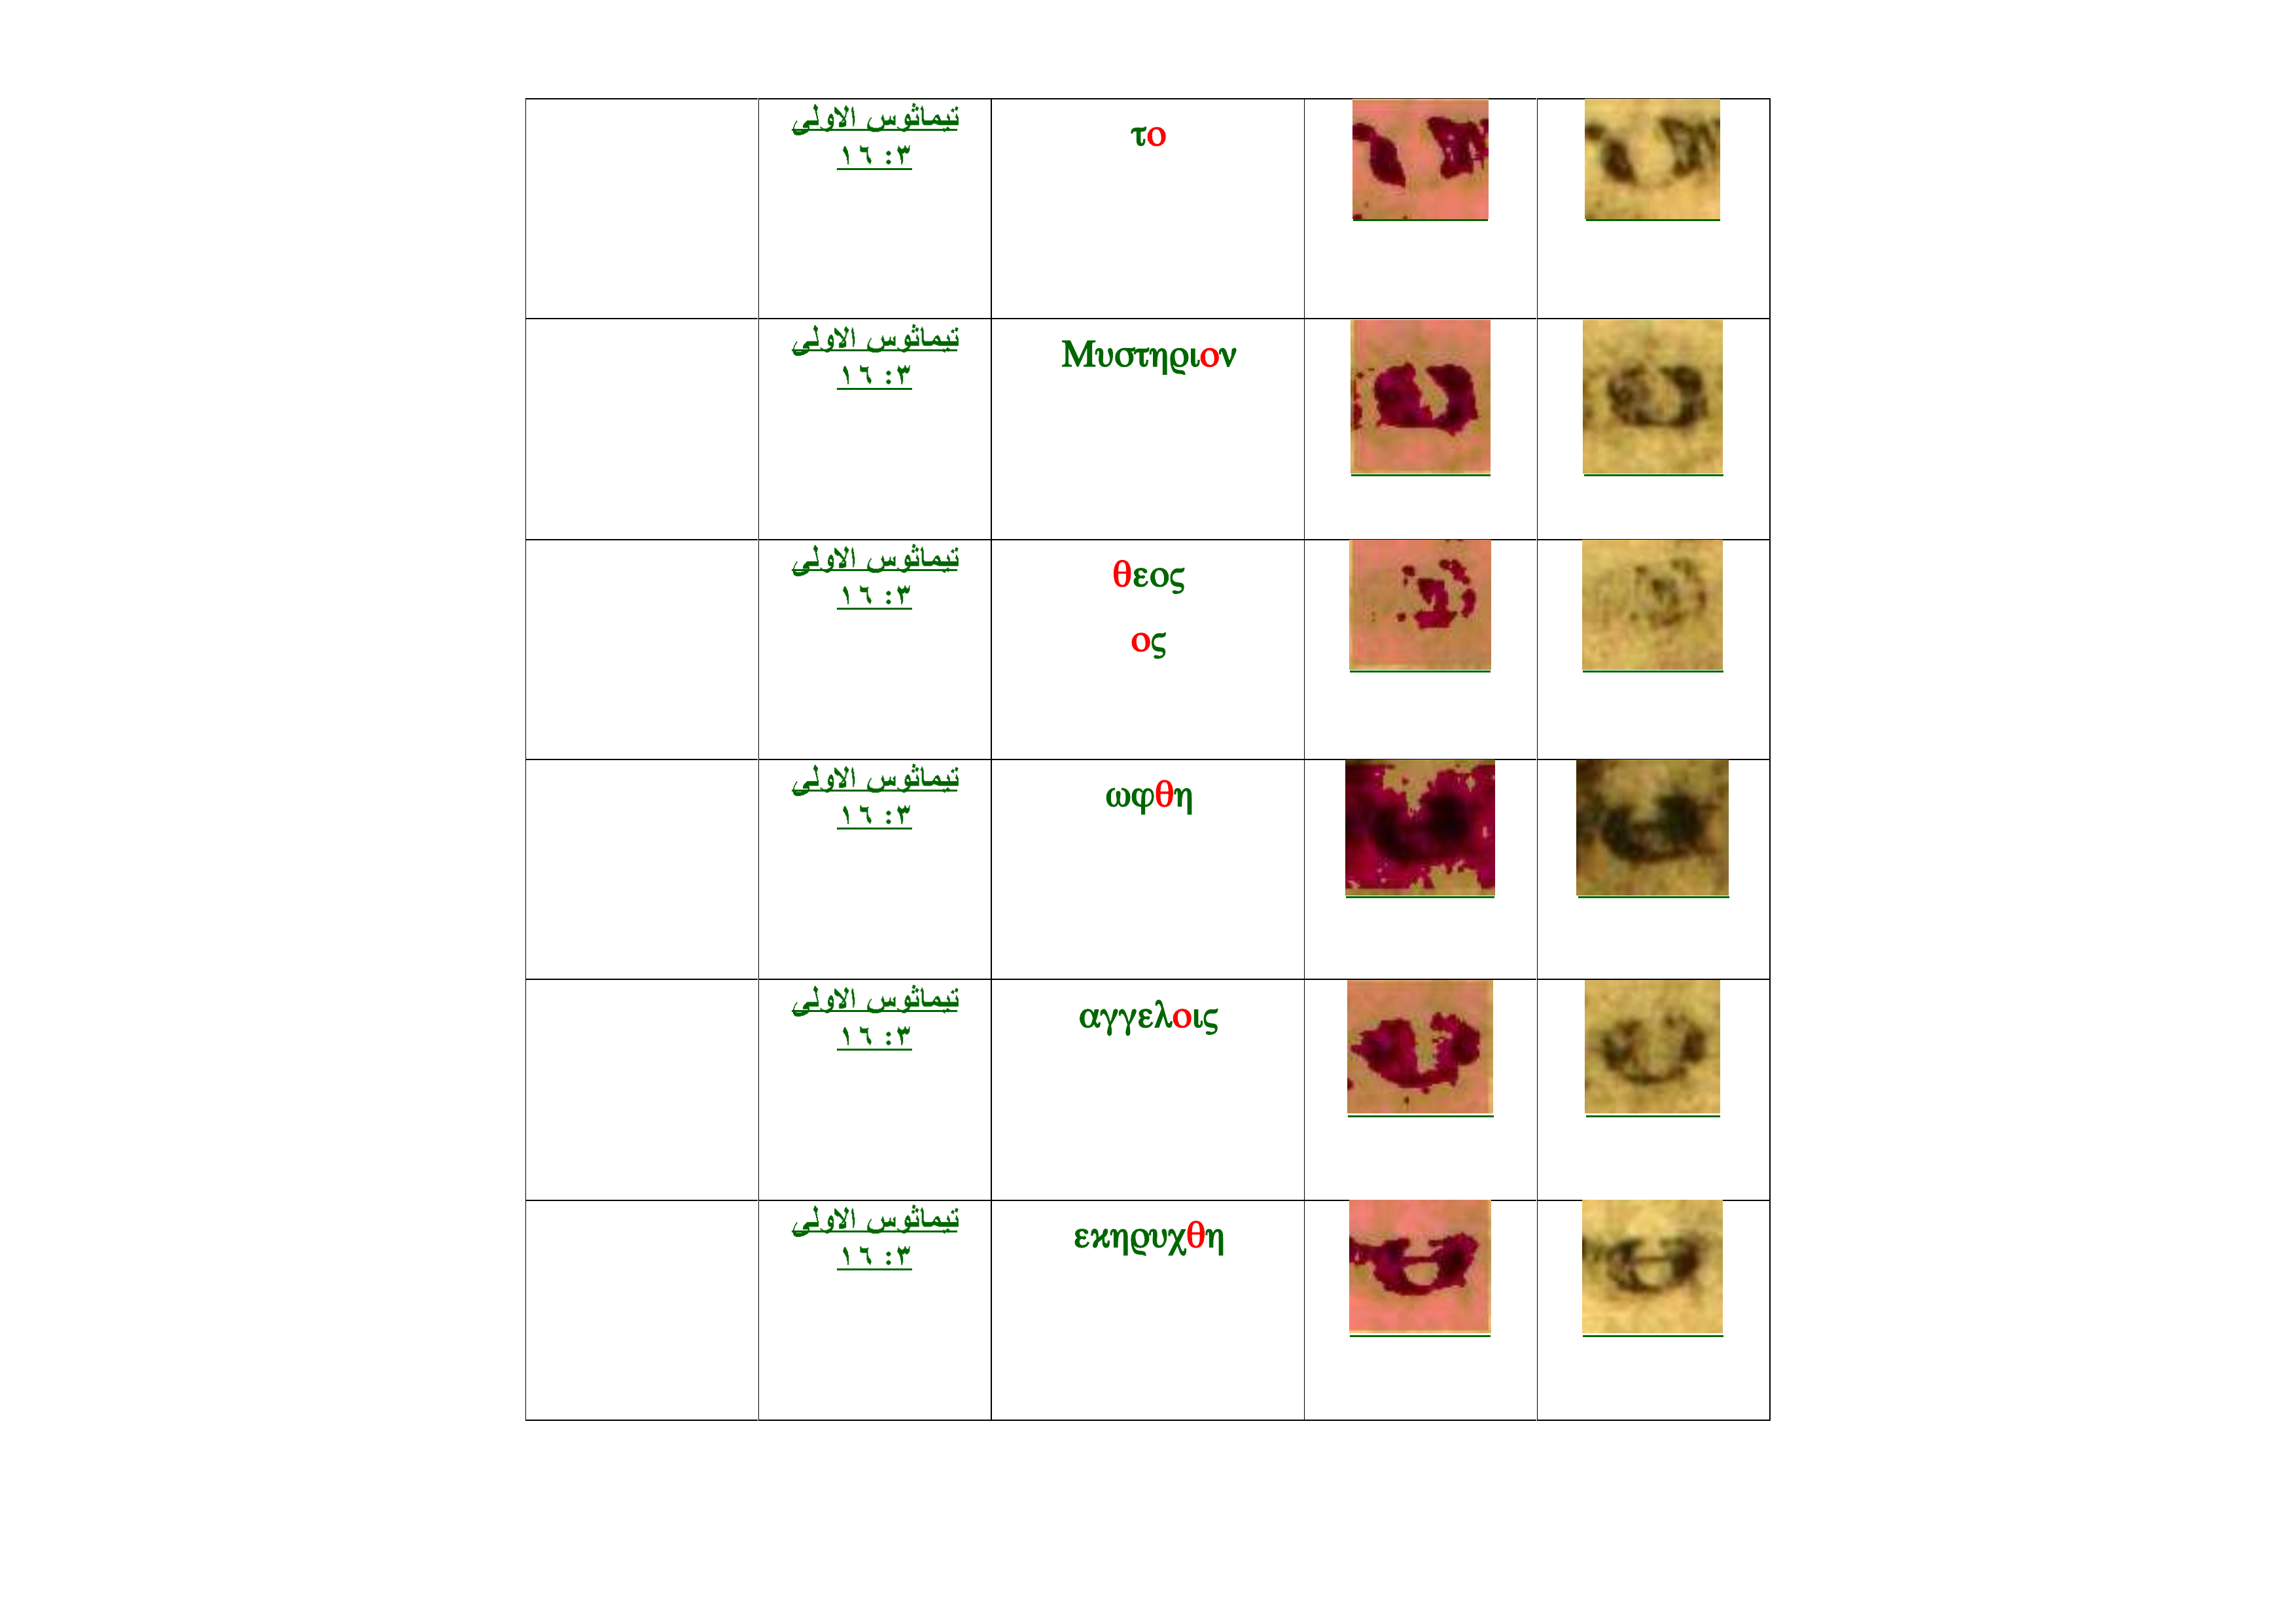 تيماثوس الاولى
٣: ١٦
το
تيماثوس الاولى
٣: ١٦
Μυστηριον
تيماثوس الاولى
٣: ١٦
θεος
ος
تيماثوس الاولى
٣: ١٦
ωφθη
تيماثوس الاولى
٣: ١٦
αγγελοις
تيماثوس الاولى
٣: ١٦
εκηρυχθη